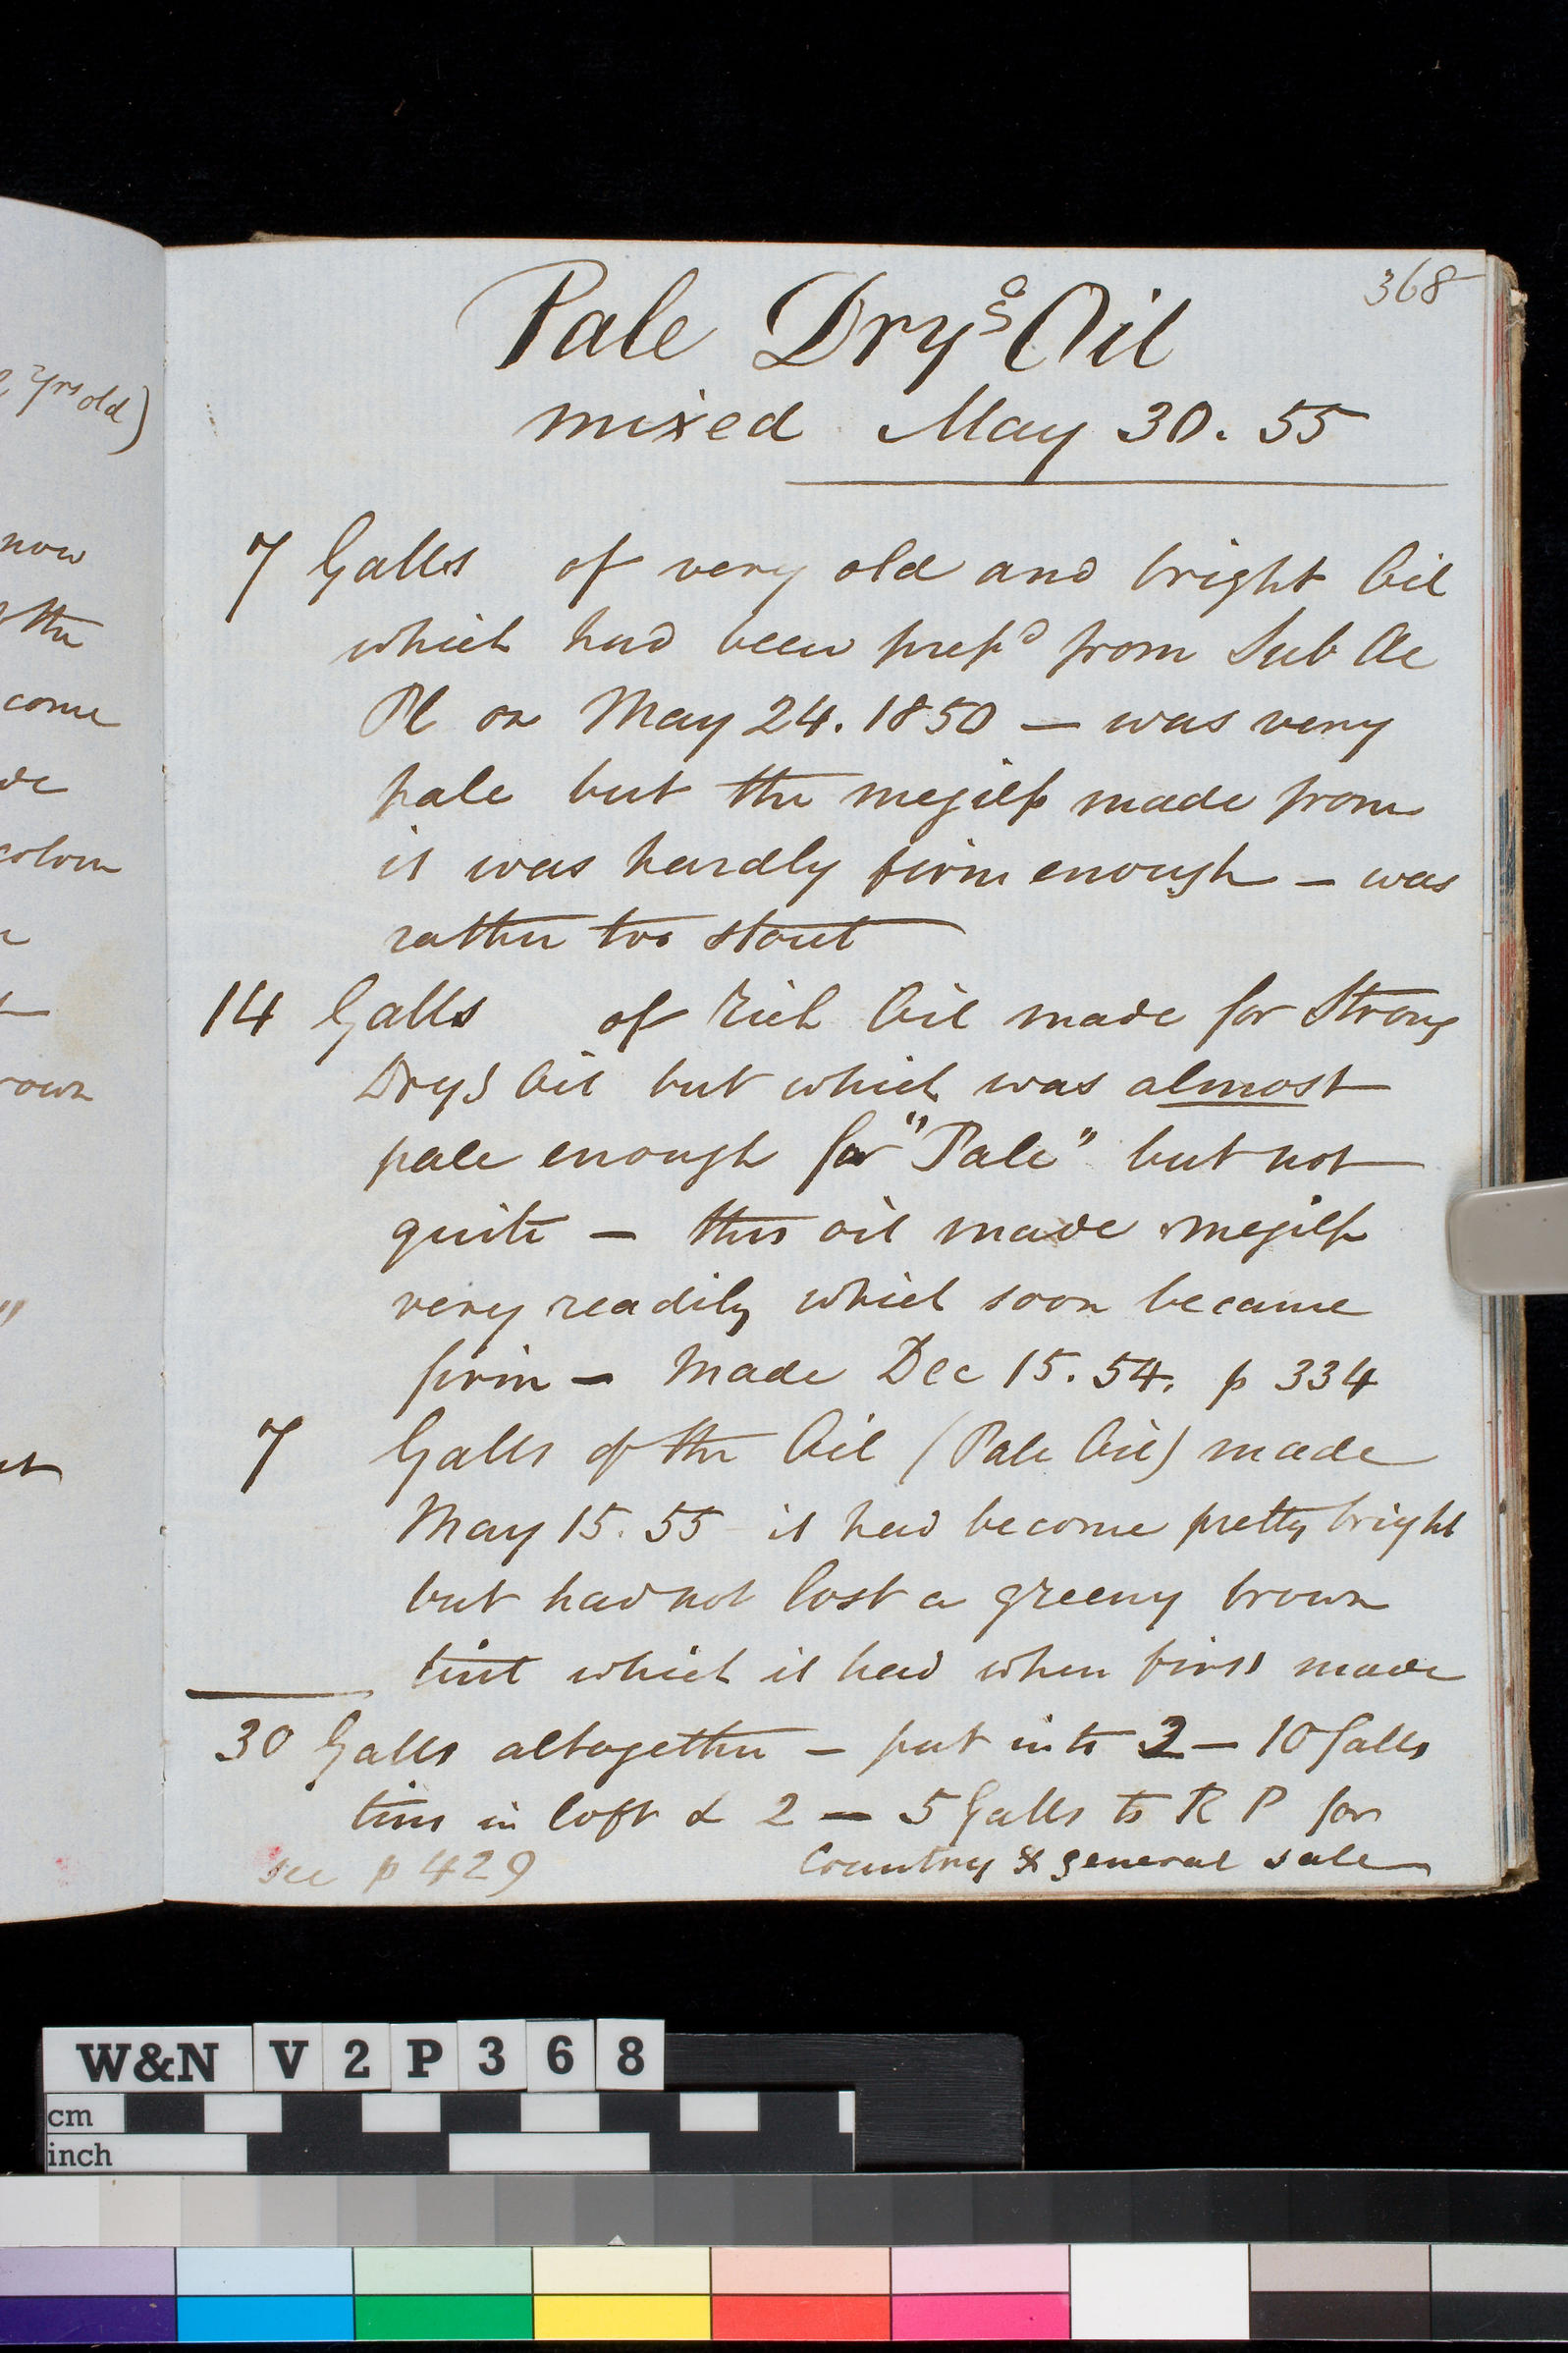 368
Pale Dryg Oil
mixed May 30. 55
7 Galls of very old and bright Oil
which had been prepd from Sub Ac
Pl on May 24. 1850 — was very
pale but the megilp made from
it was hardly firm enough — was
rather too stout
14 Galls of Rich Oil made for Strong
Dryg Oil but which was almost
pale enough for "Pale" but not
quite — this oil made megilp
very readily which soon became
firm — Made Dec 15. 54. p 334
7 Galls of the Oil (Pale Oil) made
May 15. 55 it had become pretty bright
but had not lost a greeny brown
tint which it had when first made
30 Galls altogether — put into 2 — 10 Galls
tins in loft & 2 — 5 Galls to R P for
Country & general sale
see p 429
yrs old)
now
the
come
colour
W&N V2P368
cm
inch